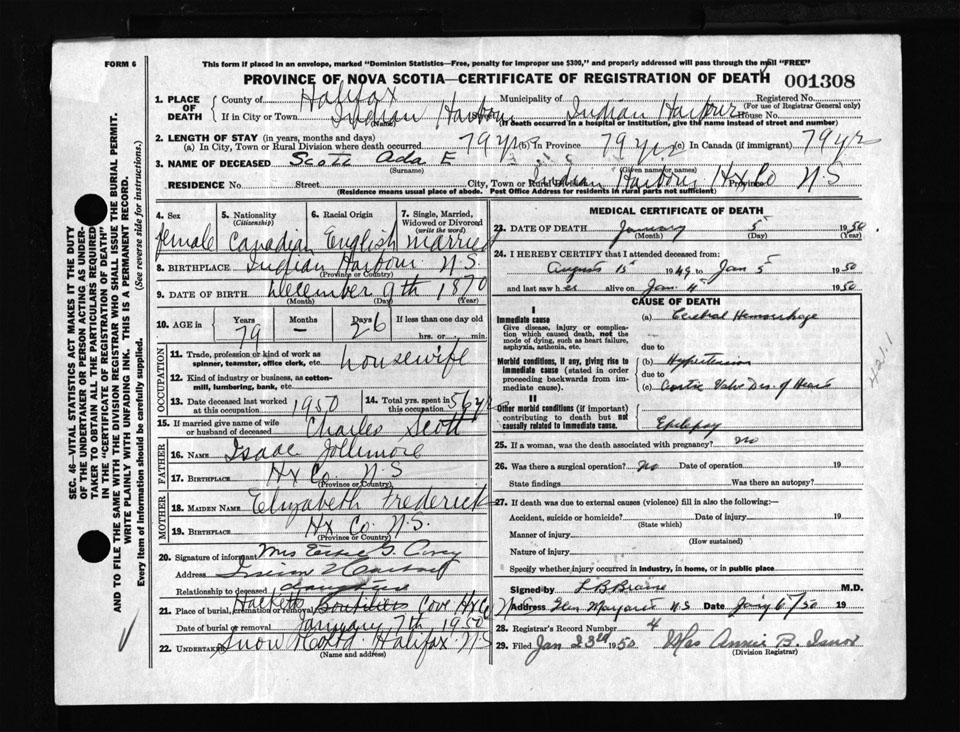 FORM 6
This form if placed in an envelope, marked "Dominion Statistics—Free, penalty for improper use $300," and properly addressed will pass through the mail "FREE"
PROVINCE OF NOVA SCOTIA—CERTIFICATE OF REGISTRATION OF DEATH 001308
1. PLACE OF DEATH County of Halifax Municipality of Indian Harbour Registered No.
(For use of Registrar General only)
If in City or Town Indian Harbour House No.
(Name) (If death occurred in a hospital or institution, give the name instead of street and number)
2. LENGTH OF STAY (in years, months and days)
(a) In City, Town or Rural Division where death occurred 79 yrs (b) In Province 79 yrs (c) In Canada (if immigrant) 79 yr
3. NAME OF DECEASED Scott Ada E
(Surname) (Given name or names)
RESIDENCE No. Street City, Town or Rural Division Indian Harbour Hx Co Province N S
(Residence means usual place of abode. Post Office Address for residents in rural parts not sufficient)
SEC. 46—VITAL STATISTICS ACT MAKES IT THE DUTY
OF THE UNDERTAKER OR PERSON ACTING AS UNDER-
TAKER TO OBTAIN ALL THE PARTICULARS REQUIRED
IN THE "CERTIFICATE OF REGISTRATION OF DEATH" AND
TO FILE THE SAME WITH THE DIVISION REGISTRAR WHO SHALL ISSUE THE BURIAL PERMIT.
WRITE PLAINLY WITH UNFADING INK. THIS IS A PERMANENT RECORD.
Every item of information should be carefully supplied. (See reverse side for instructions.)
4. Sex 5. Nationality (Citizenship) 6. Racial Origin 7. Single, Married, Widowed or Divorced (write the word)
female Canadian English married
8. BIRTHPLACE Indian Harbour N.S.
(Province or Country)
9. DATE OF BIRTH December 9th 1870
(Month) (Day) (Year)
10. AGE in Years Months Days If less than one day old
79 — 26 hrs. or min.
OCCUPATION
11. Trade, profession or kind of work as spinner, teamster, office clerk, etc. housewife
12. Kind of industry or business, as cotton-mill, lumbering, bank, etc.
13. Date deceased last worked at this occupation 1950 14. Total yrs. spent in this occupation 56 yrs
15. If married give name of wife or husband of deceased Charles Scott
FATHER
16. NAME Isaac Jollimore
17. BIRTHPLACE Hx Co N.S
(Province or Country)
MOTHER
18. MAIDEN NAME Elizabeth Fredericks
19. BIRTHPLACE Hx Co. N.S.
(Province or Country)
20. Signature of informant Mrs G.
Address Indian Harbour
Relationship to deceased daughter
21. Place of burial, cremation or removal Hacketts Boutiliers Cove Hx Co
Date of burial or removal January 7th 1950
22. UNDERTAKER Snow & Co Ltd Halifax N.S
(Name and address)
MEDICAL CERTIFICATE OF DEATH
23. DATE OF DEATH January 5 1950
(Month) (Day) (Year)
24. I HEREBY CERTIFY that I attended deceased from:
August 15 1949 to Jan 5 1950
and last saw her alive on Jan 4 1950
CAUSE OF DEATH
I
Immediate cause (a) Cerebral Hemorrhage
Give disease, injury or complication which caused death, not the mode of dying, such as heart failure, asphyxia, asthenia, etc.
due to
Morbid conditions, if any, giving rise to immediate cause (stated in order proceeding backwards from immediate cause)
(b) Hypertension
due to
(c) Aortic Valv Dis. of Heart
II
Other morbid conditions (if important) contributing to death but not causally related to immediate cause.
Epilepsy
421.1
25. If a woman, was the death associated with pregnancy? no
26. Was there a surgical operation? No Date of operation 19
State findings Was there an autopsy?
27. If death was due to external causes (violence) fill in also the following:—
Accident, suicide or homicide? Date of injury 19
(State which)
Manner of injury
(How sustained)
Nature of injury
Specify whether injury occurred in industry, in home, or in public place
Signed by M.D.
Address Glen Margaret N S Date Jany 6/50 19
28. Registrar's Record Number 4
29. Filed Jan 23rd 1950 Mrs Annie B.
(Division Registrar)